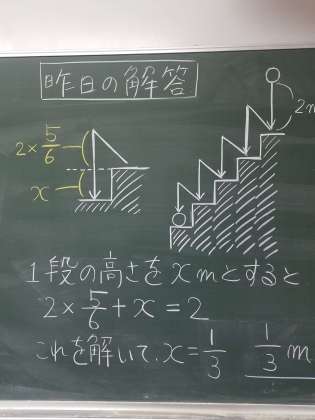 昨日の解答
2m
2×5/6
x
1段の高さをxmとすると
2×5/6+x=2
これを解いて、x=1/3 1/3m